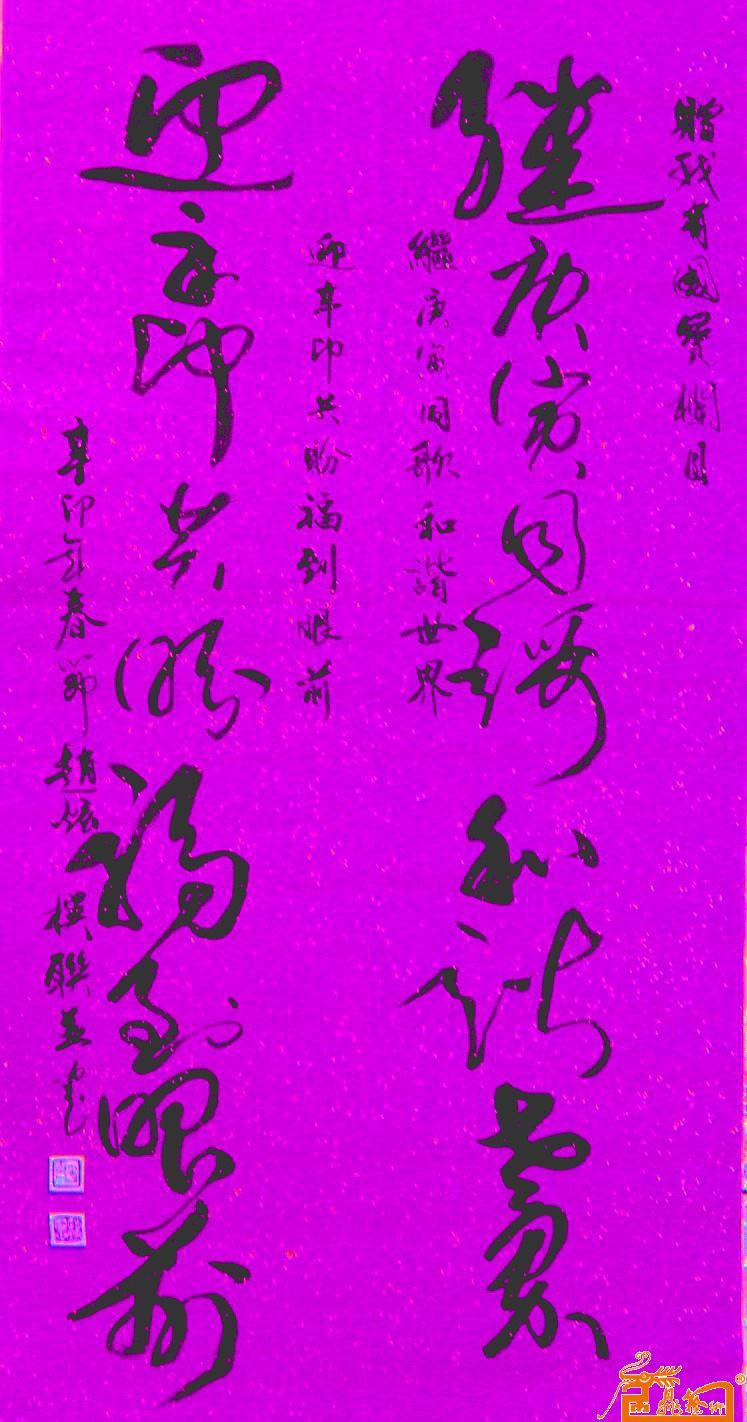 贈我有國寶欄目
繼庚寅同謌和諧世界
繼庚寅同歌和諧世界
迎辛卯共盼福到眼前
迎辛卯共盼福到眼前
辛卯年春節趙 撰聯並書